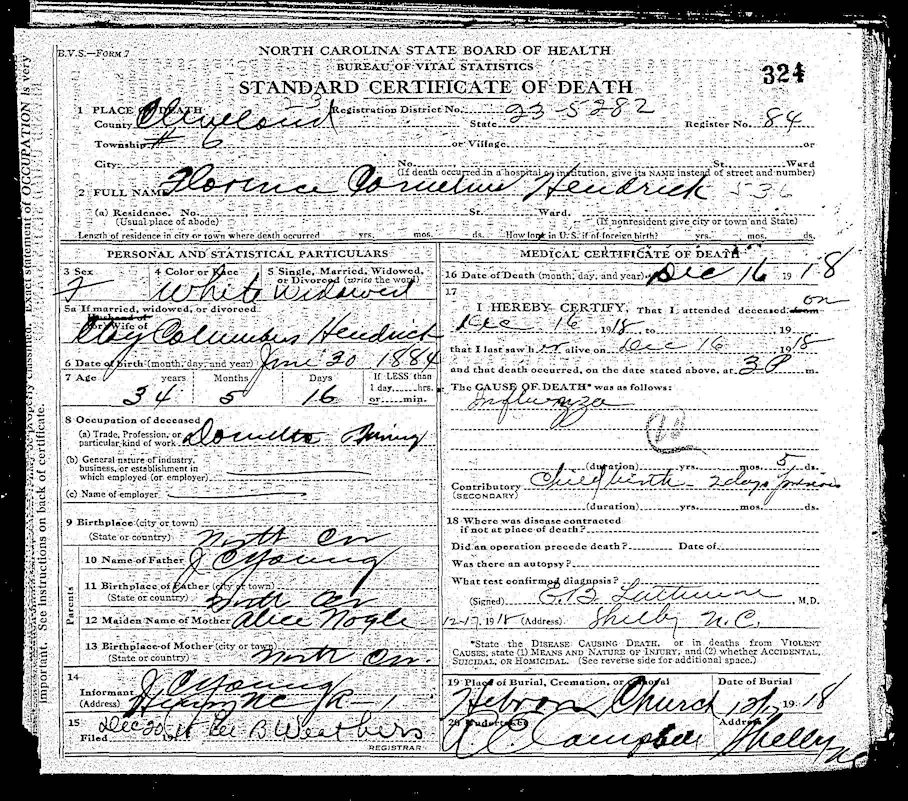 B.V.S.—FORM 7
NORTH CAROLINA STATE BOARD OF HEALTH
BUREAU OF VITAL STATISTICS
STANDARD CERTIFICATE OF DEATH
324
1 PLACE OF DEATH
County Cleveland Registration District No. 23-5282 State Register No. 84
Township # 6 or Village or
City No. St. Ward
(If death occurred in a hospital or institution, give its NAME instead of street and number)
2 FULL NAME Florence Cornelius Hendrick 536
(a) Residence. No. St. Ward.
(Usual place of abode) (If nonresident give city or town and State)
Length of residence in city or town where death occurred yrs. mos. ds. How long in U. S. if of foreign birth? yrs. mos. ds.
PERSONAL AND STATISTICAL PARTICULARS
3 Sex 4 Color or Race 5 Single, Married, Widowed, or Divorced (write the word)
F White Widowed
5a If married, widowed, or divorced
Husband of
(or) Wife of
Clay Columbus Hendrick
6 Date of birth (month, day, and year) June 30 1884
7 Age years Months Days If LESS than
1 day hrs.
or min.
34 5 16
8 Occupation of deceased
(a) Trade, Profession, or
particular kind of work Domestic
(b) General nature of industry,
business, or establishment in
which employed (or employer)
(c) Name of employer
9 Birthplace (city or town)
(State or country) North Car
Parents
10 Name of Father J C Young
11 Birthplace of Father (city or town)
(State or country) North Car
12 Maiden Name of Mother Alice Nogle
13 Birthplace of Mother (city or town)
(State or country) North Car.
14
Informant J C Young
(Address) NC R-1
15
Filed Dec 20 19 Lee B Weathers
REGISTRAR
MEDICAL CERTIFICATE OF DEATH
16 Date of Death (month, day, and year) Dec 16 1918
17
I HEREBY CERTIFY, That I attended deceased from on
Dec 16 1918 to 19
that I last saw her alive on Dec 16 1918
and that death occurred, on the date stated above, at 3 P m.
The CAUSE OF DEATH* was as follows:
Influenza
10
(duration) yrs. mos. 5 ds.
Contributory Childbirth - 2 days previous
(SECONDARY)
(duration) yrs. mos. ds.
18 Where was disease contracted
if not at place of death?
Did an operation precede death? Date of
Was there an autopsy?
What test confirmed diagnosis?
(Signed) , M.D.
12-17 1918 (Address) Shelby N.C.
*State the DISEASE CAUSING DEATH, or in deaths from VIOLENT
CAUSES, state (1) MEANS AND NATURE OF INJURY, and (2) whether ACCIDENTAL,
SUICIDAL, OR HOMICIDAL. (See reverse side for additional space.)
19 Place of Burial, Cremation, or Removal Date of Burial
Hebron Church 12/17 1918
20 Undertaker Address
Campbell Shelby NC
important. See instructions on back of certificate.
Exact statement of OCCUPATION is very